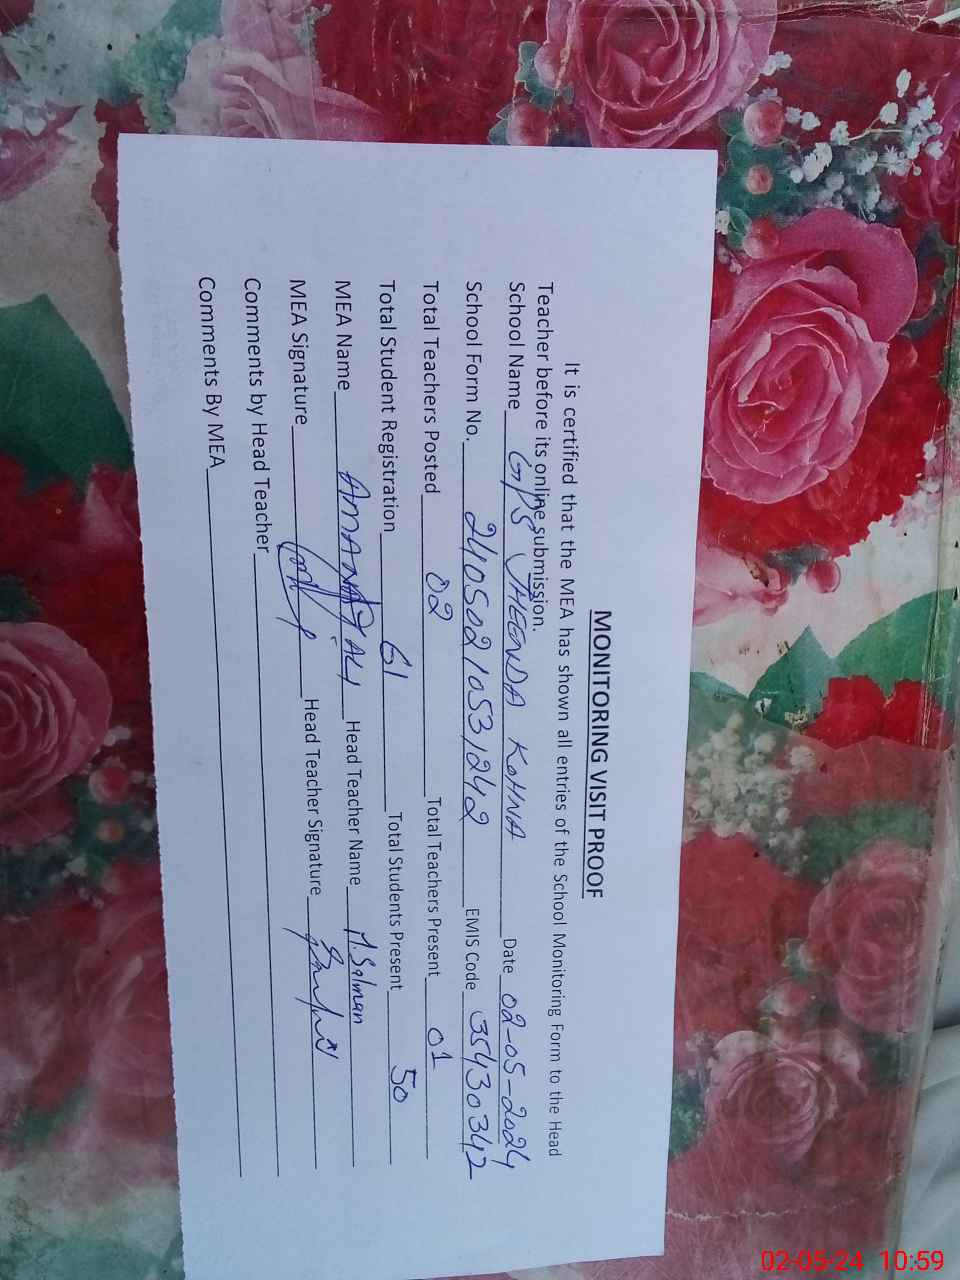 MONITORING VISIT PROOF
It is certified that the MEA has shown all entries of the School Monitoring Form to the Head
Teacher before its online submission.
School Name GPS JHEENDA KOHNA Date 02-05-2024
School Form No. 24050210531242 EMIS Code 35430342
Total Teachers Posted 02 Total Teachers Present 01
Total Student Registration 61 Total Students Present 50
MEA Name AMANAT ALI Head Teacher Name M. Salman
MEA Signature Head Teacher Signature
Comments by Head Teacher
Comments By MEA
02-05-24 10:59